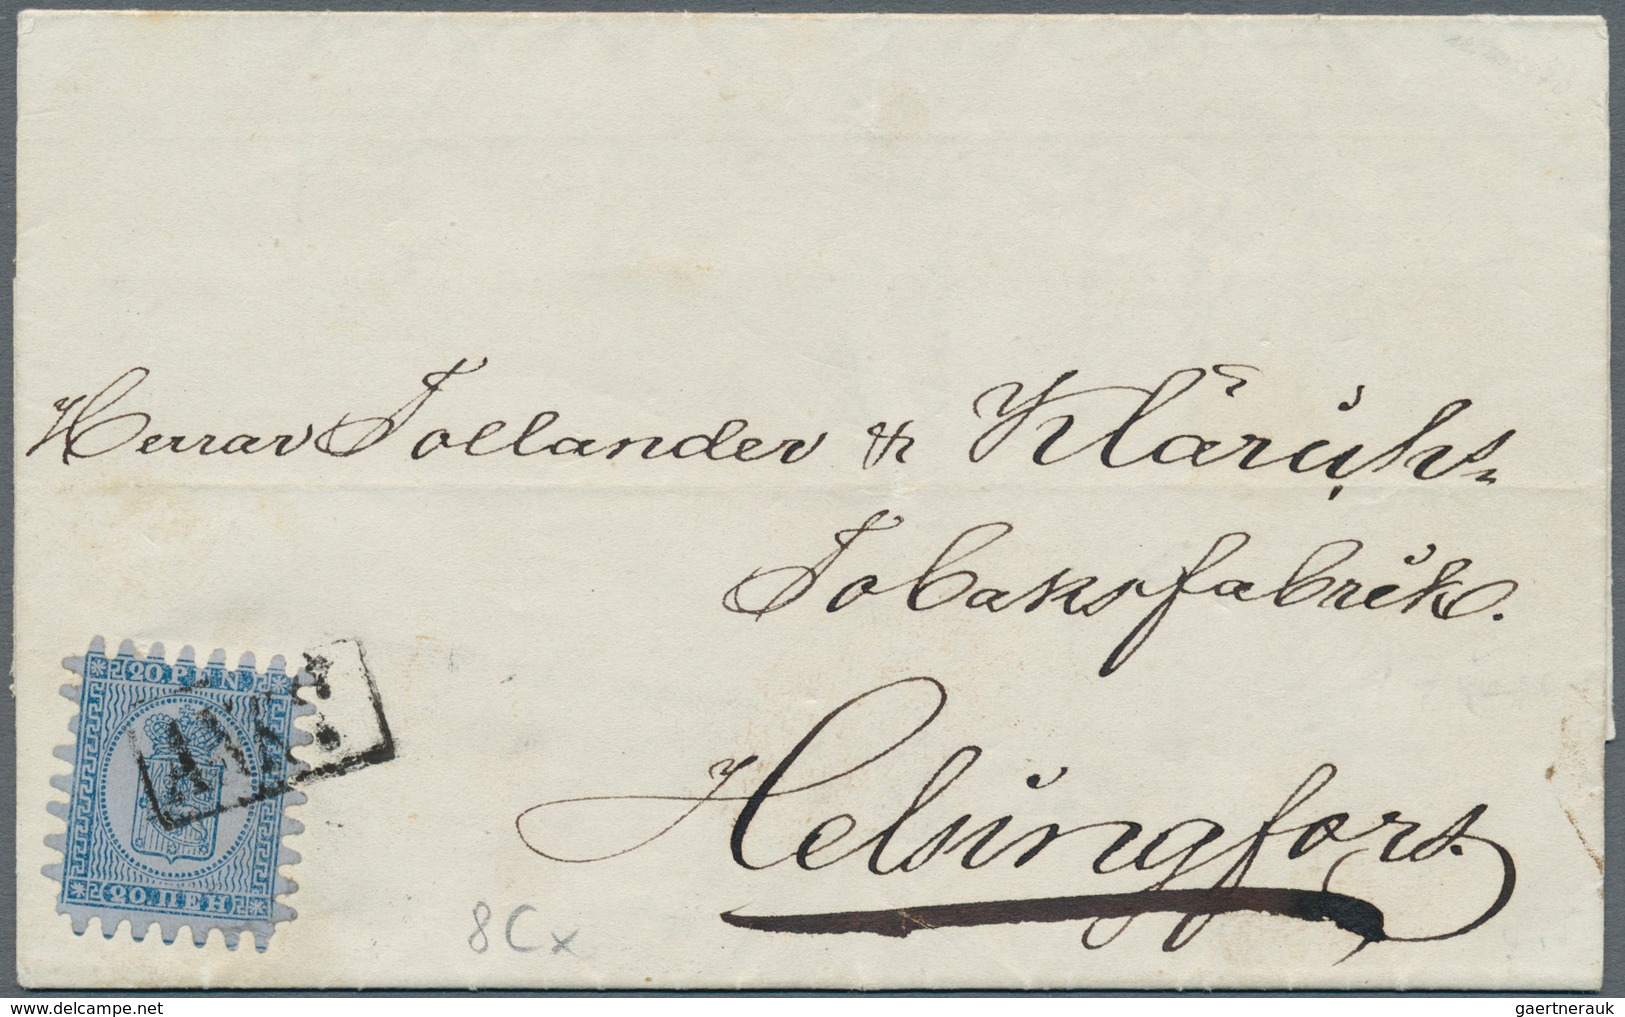 Herrar Tollander & Klärich's
Tobaksfabrik.
Helsingfors.
20 PEN
ANK
20 ПЕН
8Cx
delcampe.net
gaertnerauk